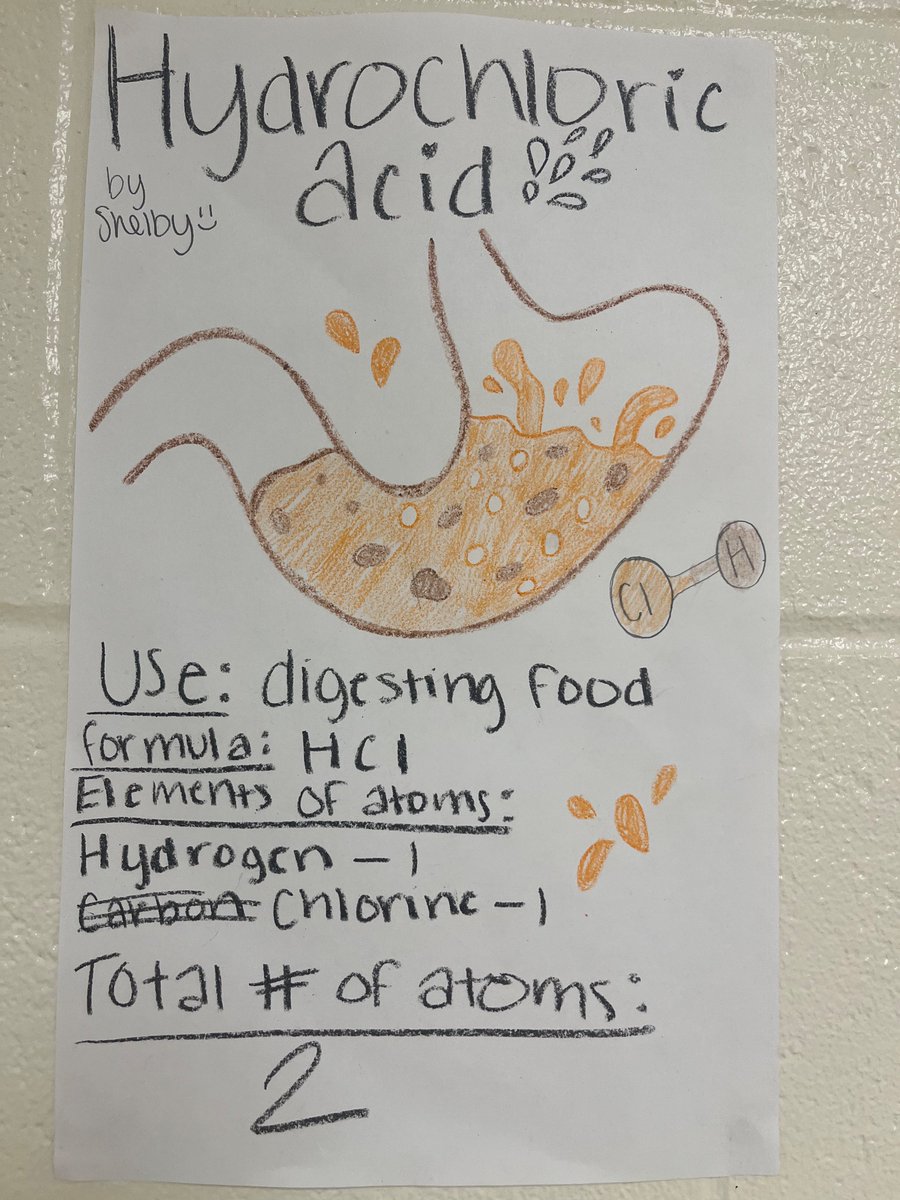 Hydrochloric
acid
by
Shelby
Cl
H
Use: digesting food
formula: HCl
Elements of atoms:
Hydrogen - 1
Carbon Chlorine - 1
Total # of atoms:
2